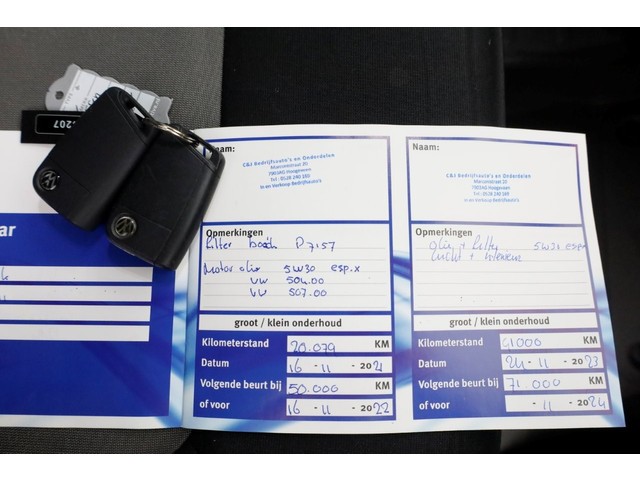 207
ar
Naam:
C&J Bedrijfsauto's en Onderdelen
Marconistraat 20
7903AG Hoogeveen
Tel: 0528 240 269
In en Verkoop Bedrijfsauto's
Opmerkingen
Filter bosch P7157
Motor olie 5W30 esp.x
VW 504.00
VW 507.00
groot / klein onderhoud
Kilometerstand 20.079 KM
Datum 16 - 11 - 2021
Volgende beurt bij 50.000 KM
of voor 16 - 11 - 2022
Naam:
C&J Bedrijfsauto's en Onderdelen
Marconistraat 20
7903AG Hoogeveen
Tel: 0528 240 269
In en Verkoop Bedrijfsauto's
Opmerkingen
olie + filter 5W30 esp
lucht +
groot / klein onderhoud
Kilometerstand 41000 KM
Datum 24 - 11 - 2023
Volgende beurt bij 71 000 KM
of voor - 11 - 2024